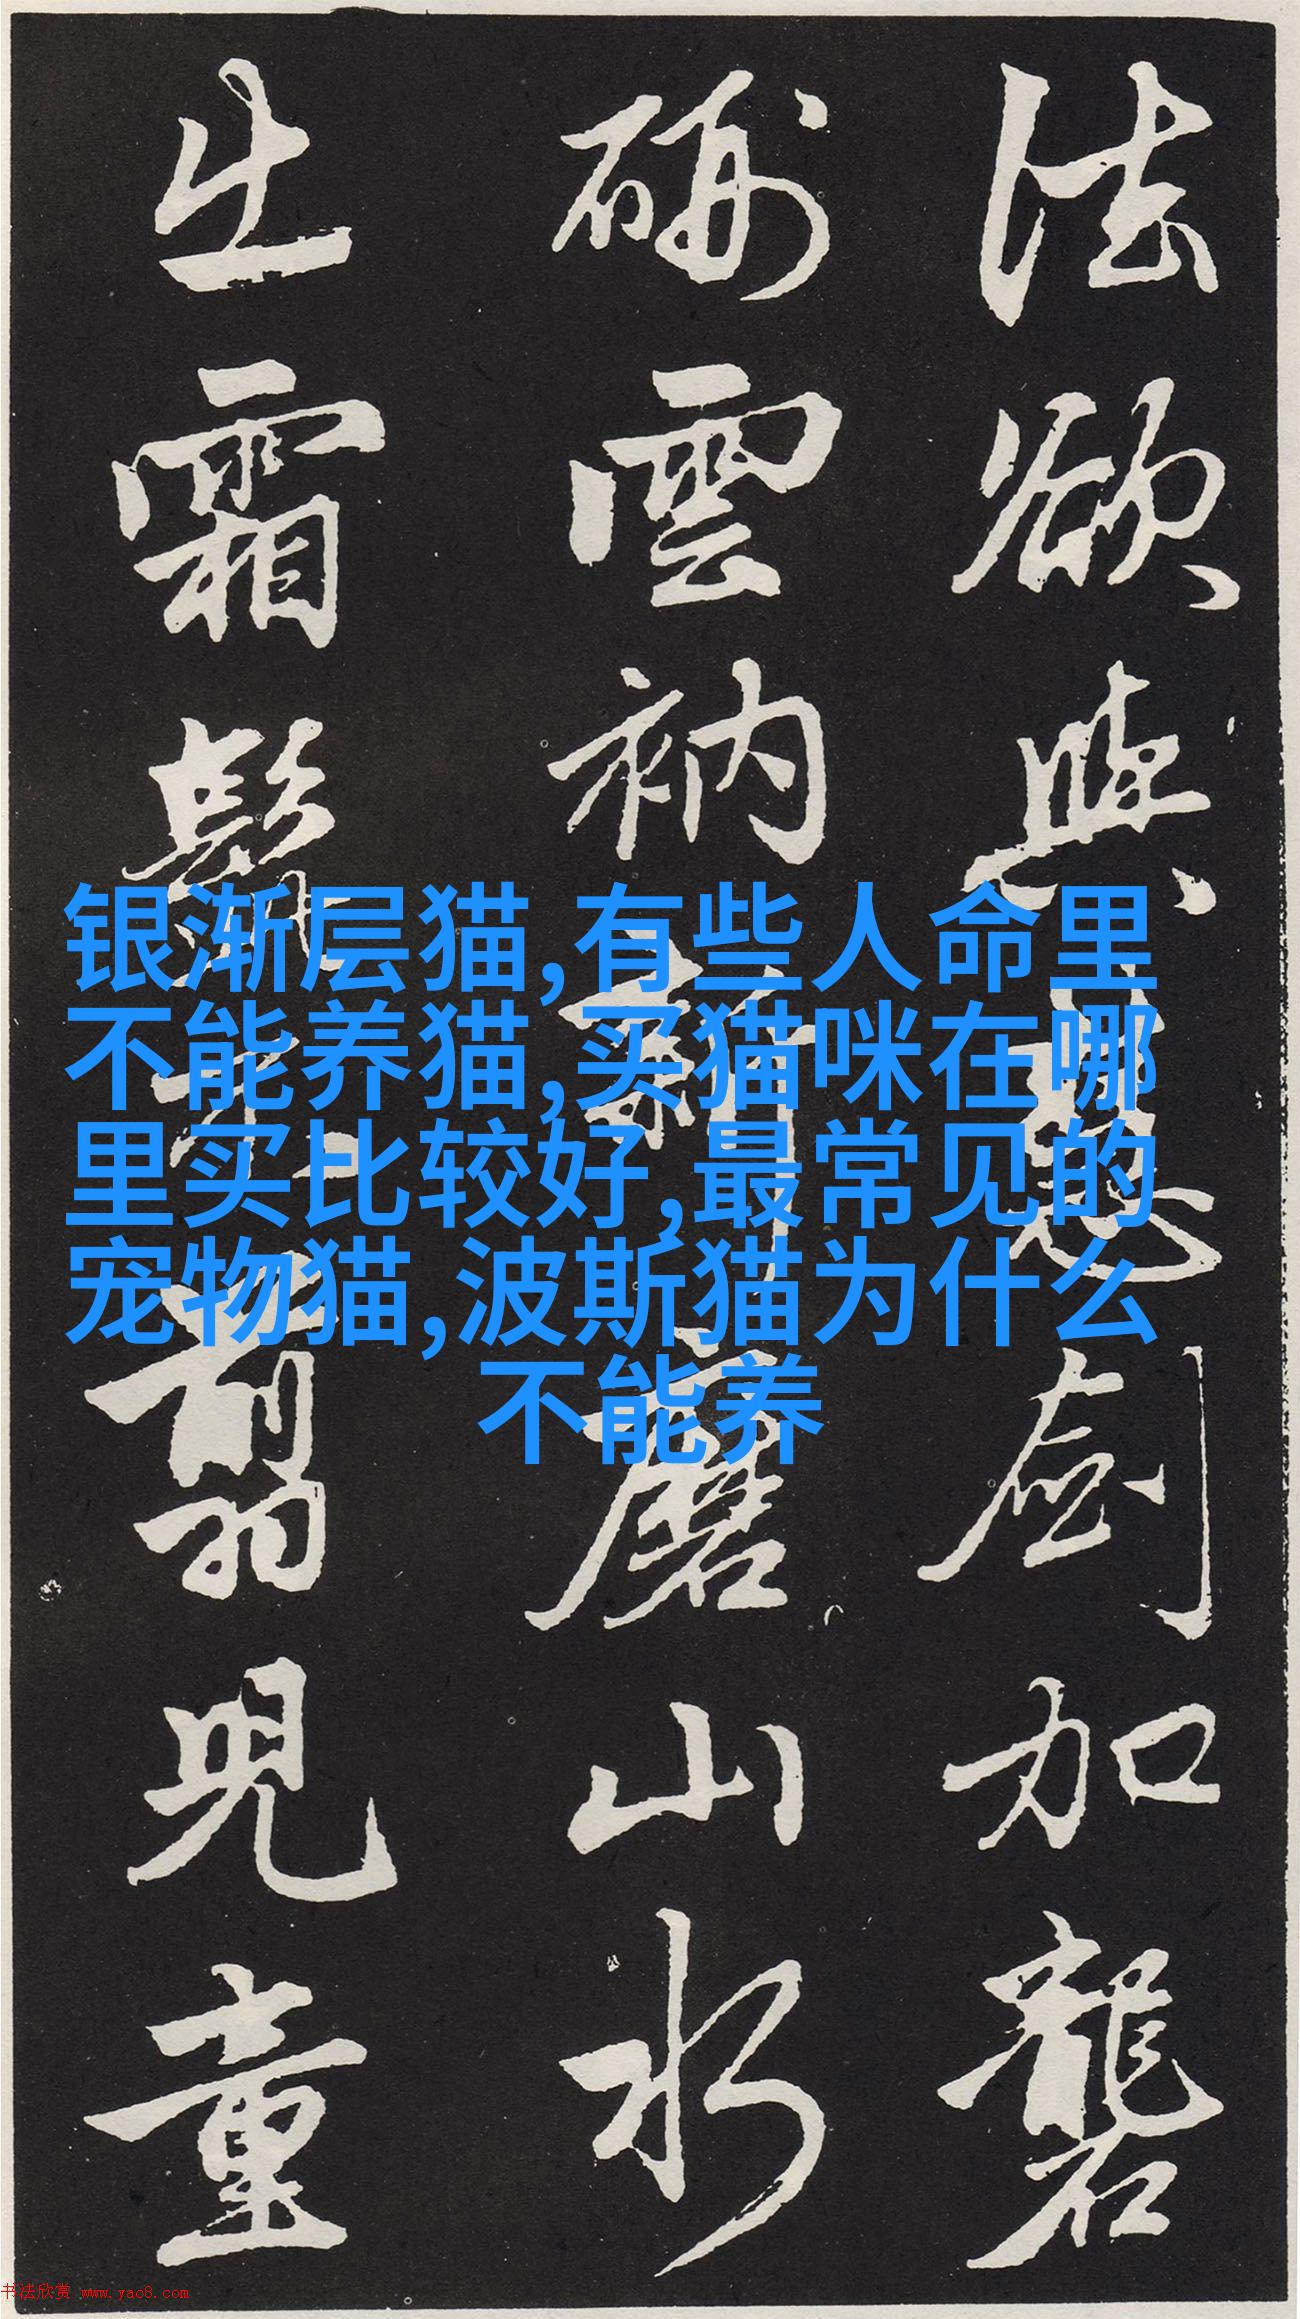 银渐层猫,有些人命里
不能养猫,买猫咪在哪
里买比较好,最常见的
宠物猫,波斯猫为什么
不能养
法欲與慧劍加礱
硎雲衲新磨山水
出霜髭不翦兒童
书法欣赏 www.yac8.com